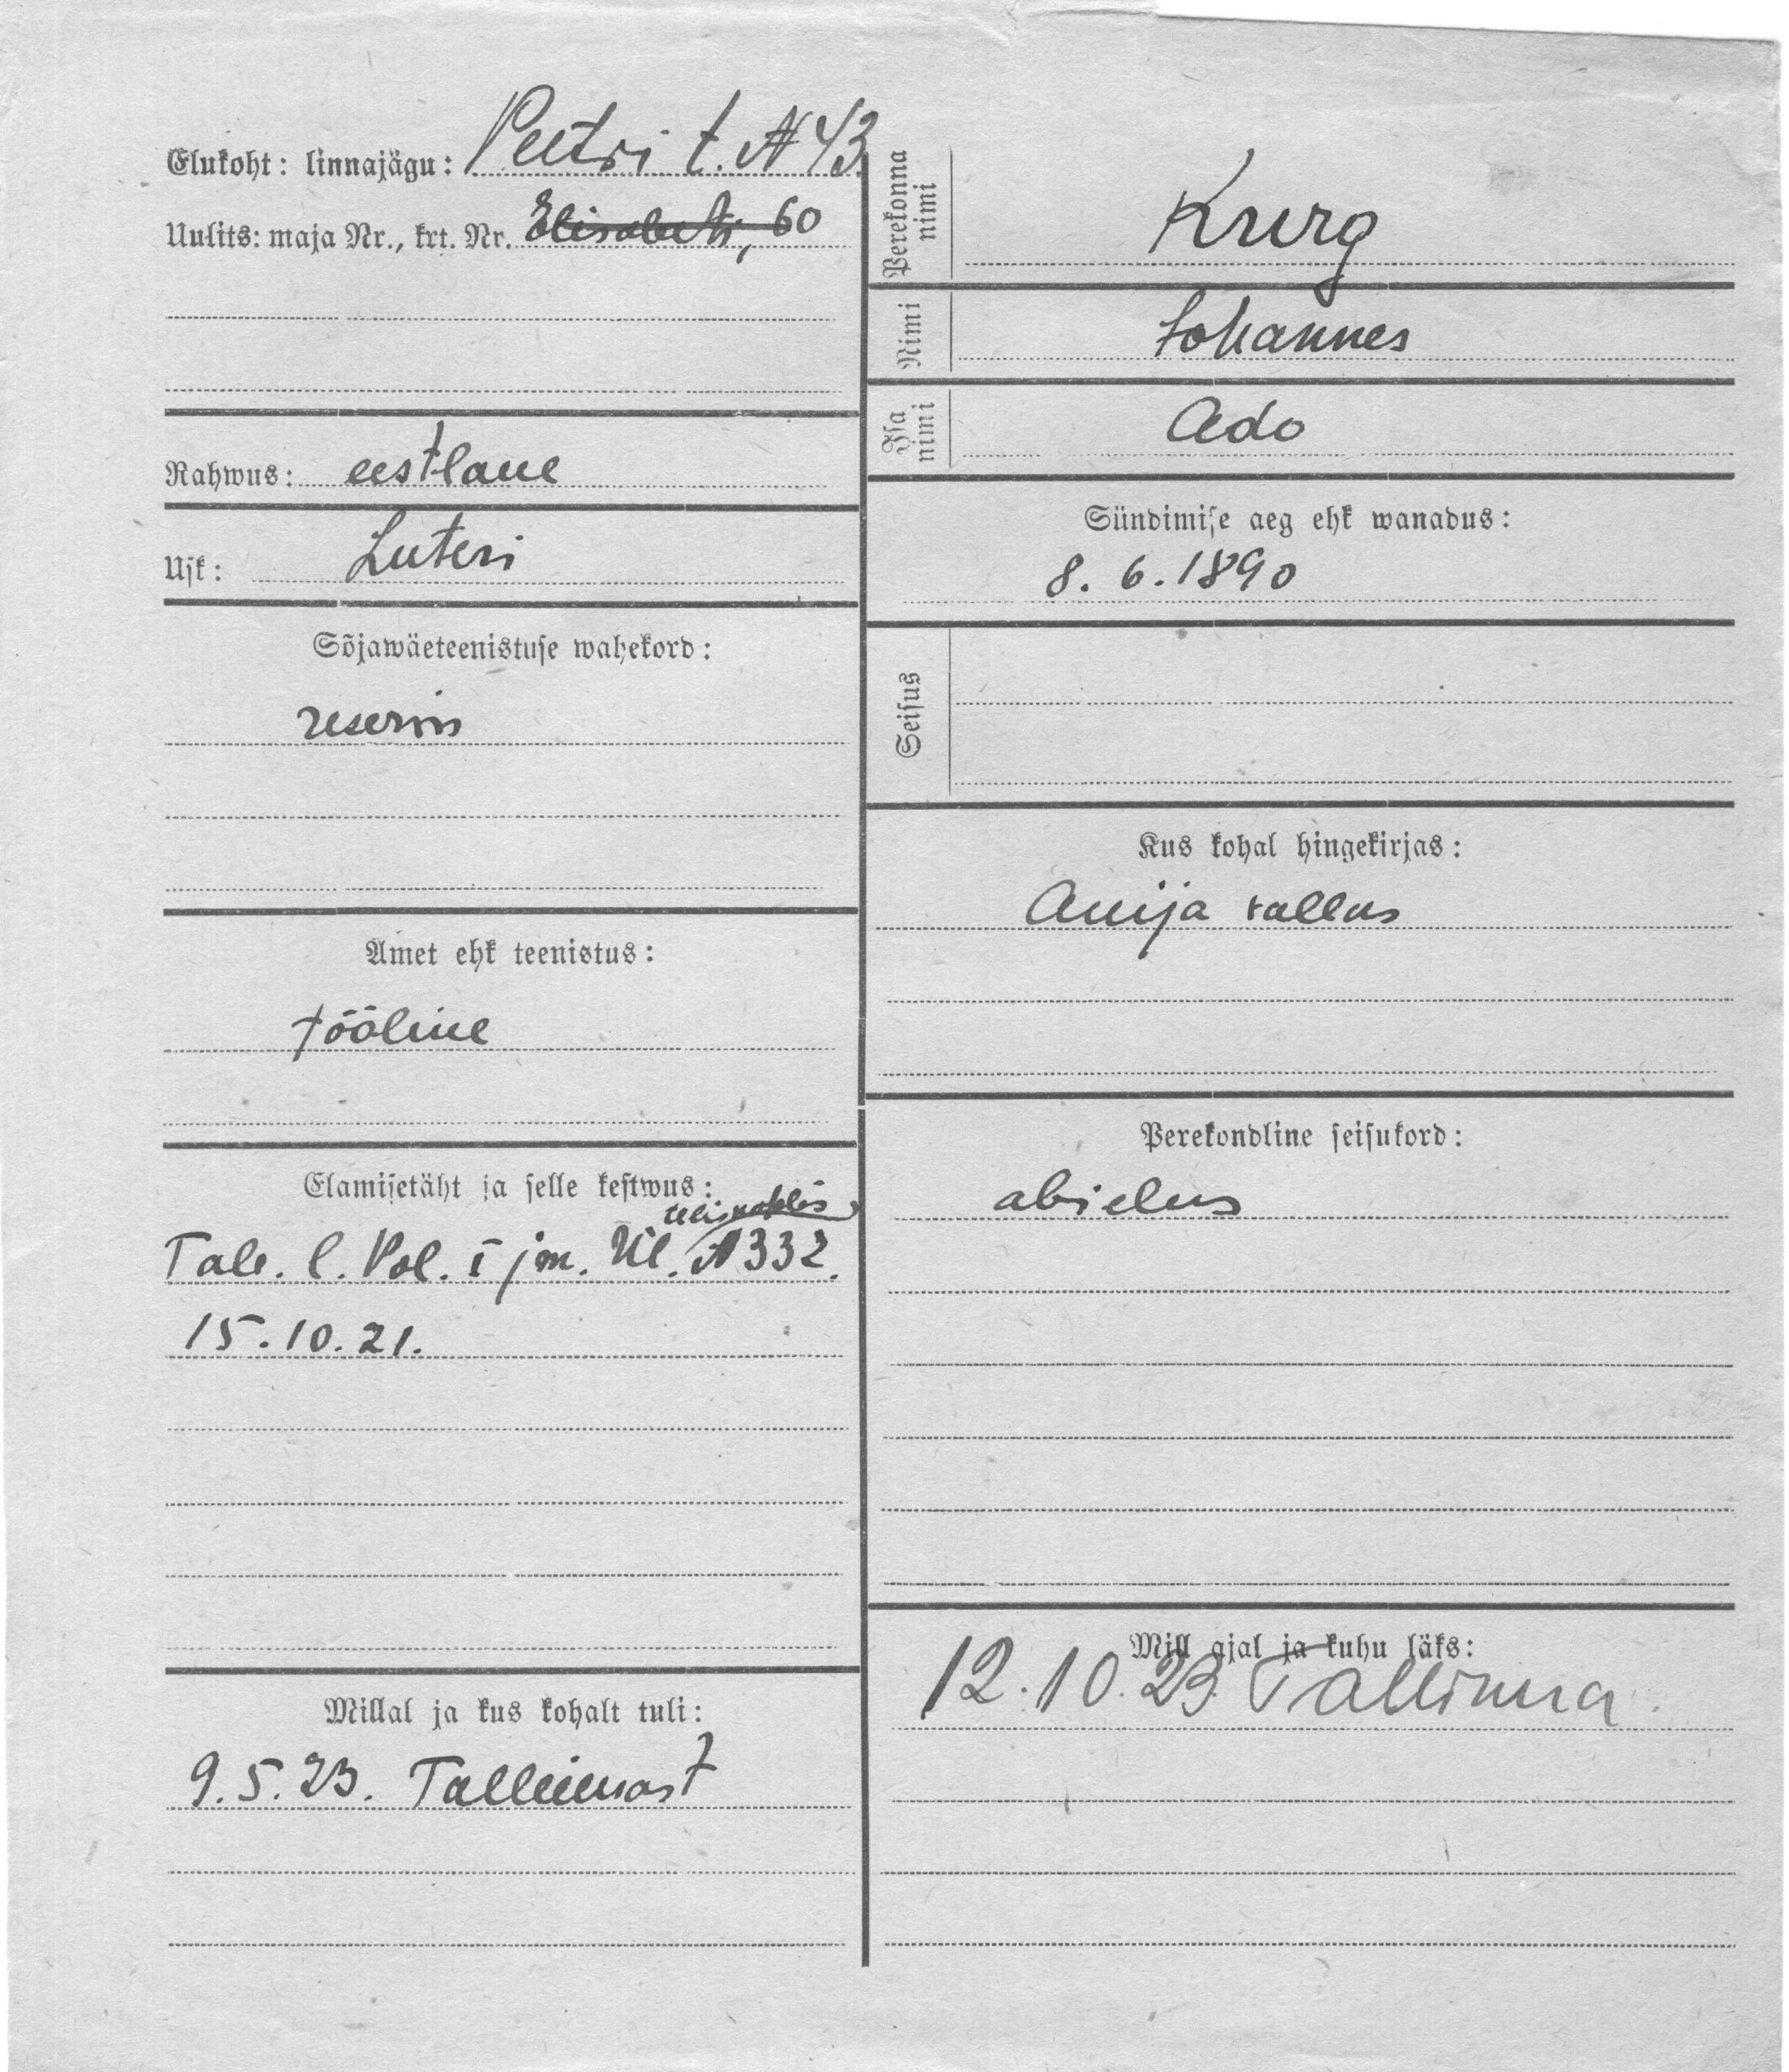 Elukoht: linnajägu: Peetri t. № 43
Uulits: maja Nr., krt. Nr. Elisabeti, 60
Rahwus: eestlane
Usk: Luteri
Sõjawäeteenistuse wahekord:
reservis
Amet ehk teenistus:
tööline
Elamisetäht ja selle kestwus:
Tale. l. Pol. I jm. Ül. № 332.
15.10.21.
Millal ja kus kohalt tuli:
9.5.23. Tallinnast
Perekonna nimi
Kurg
Nimi
Johannes
Isa nimi
Ado
Sündimise aeg ehk wanadus:
8. 6. 1890
Seisus
Kus kohal hingekirjas:
Anija vallas
Perekondline seisukord:
abielus
Mill ajal ja kuhu läks:
12.10.23. Tallinna.